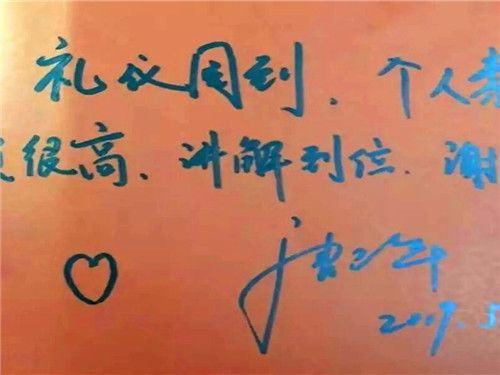 礼仪周到、个人素
很高、讲解到位.谢
2017.5